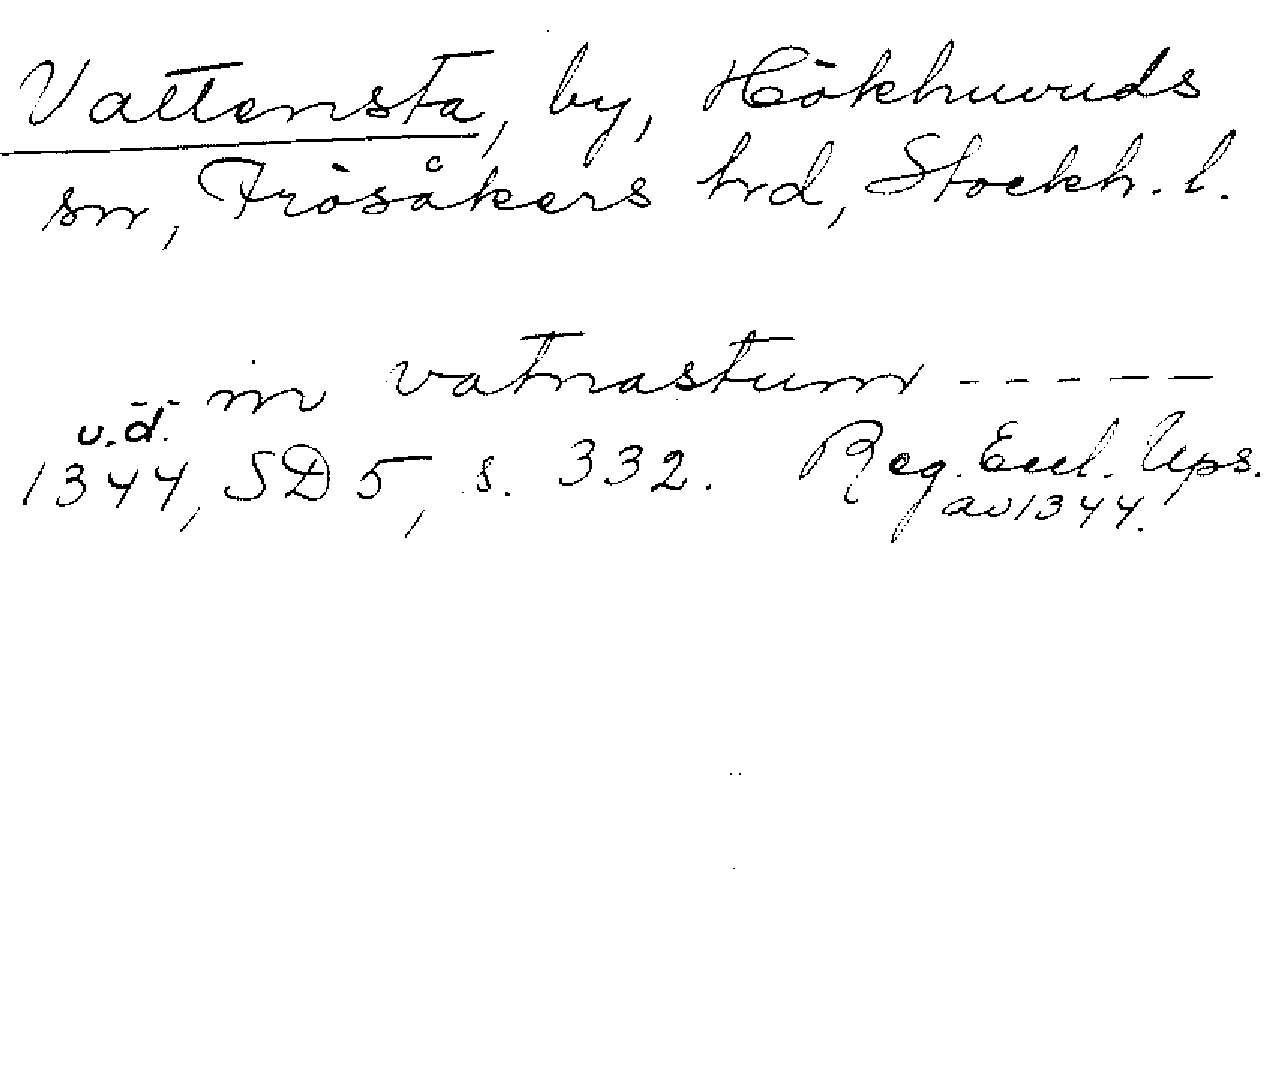 Vattensta, by, Hökhuvuds
sn, Frösåkers hrd, Stockh. l.
in vatnastum - - - - - -
u.d.
1344, SD 5, s. 332. Reg. Eccl. Ups.
av 1344.